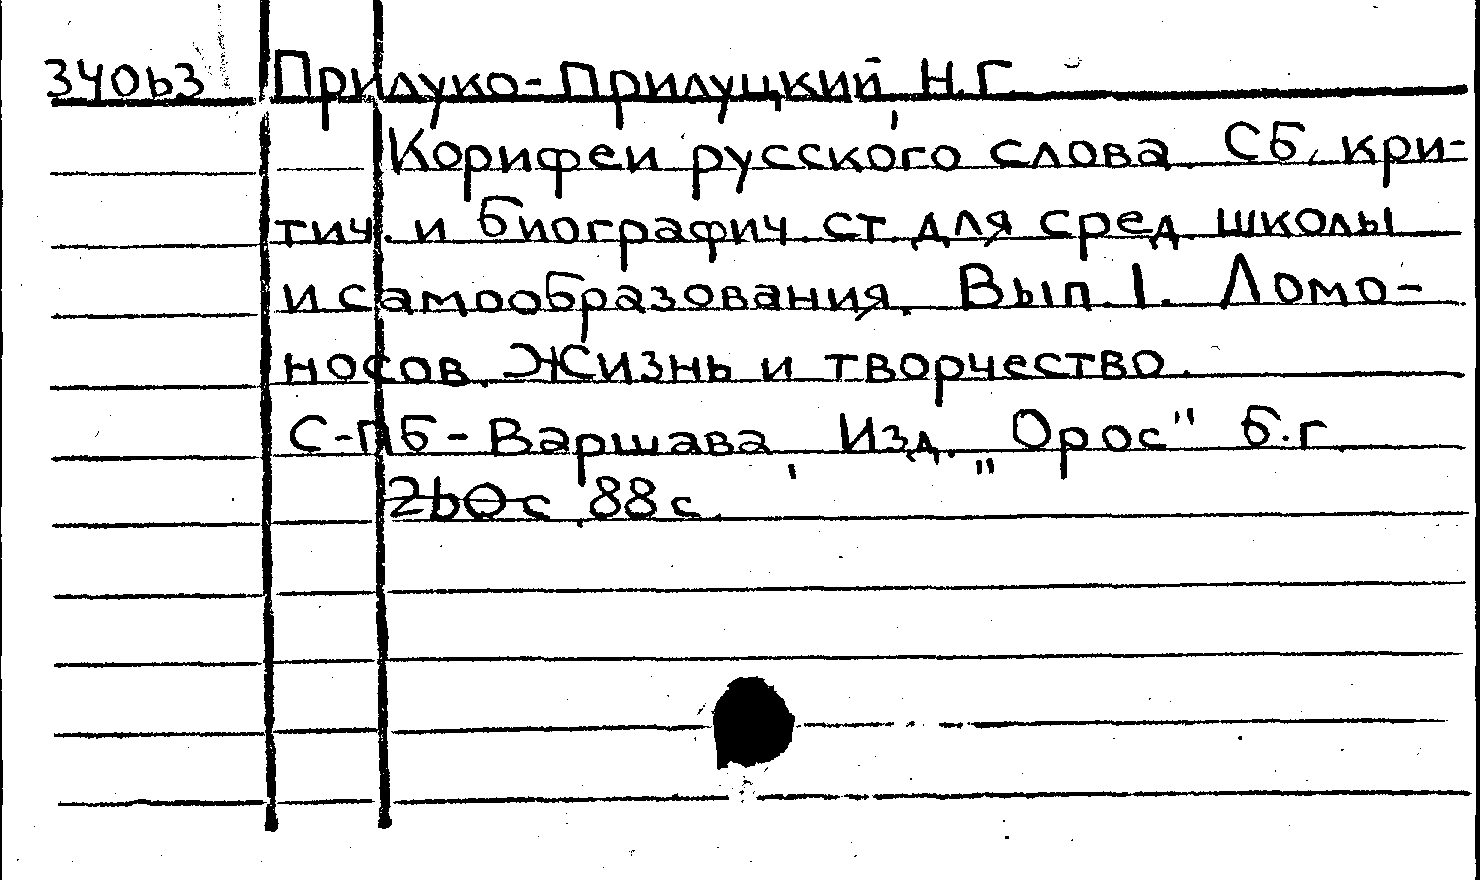 34063 Прилуко-Прилуцкий, Н.Г.
Корифеи русского слова. Сб. кри-
тич. и биографич. ст. для сред. школы
и самообразования. Вып. 1. Ломо-
носов. Жизнь и творчество.
С-ПБ-Варшава, Изд. „Орос" б.г.
260 с. 88 с.